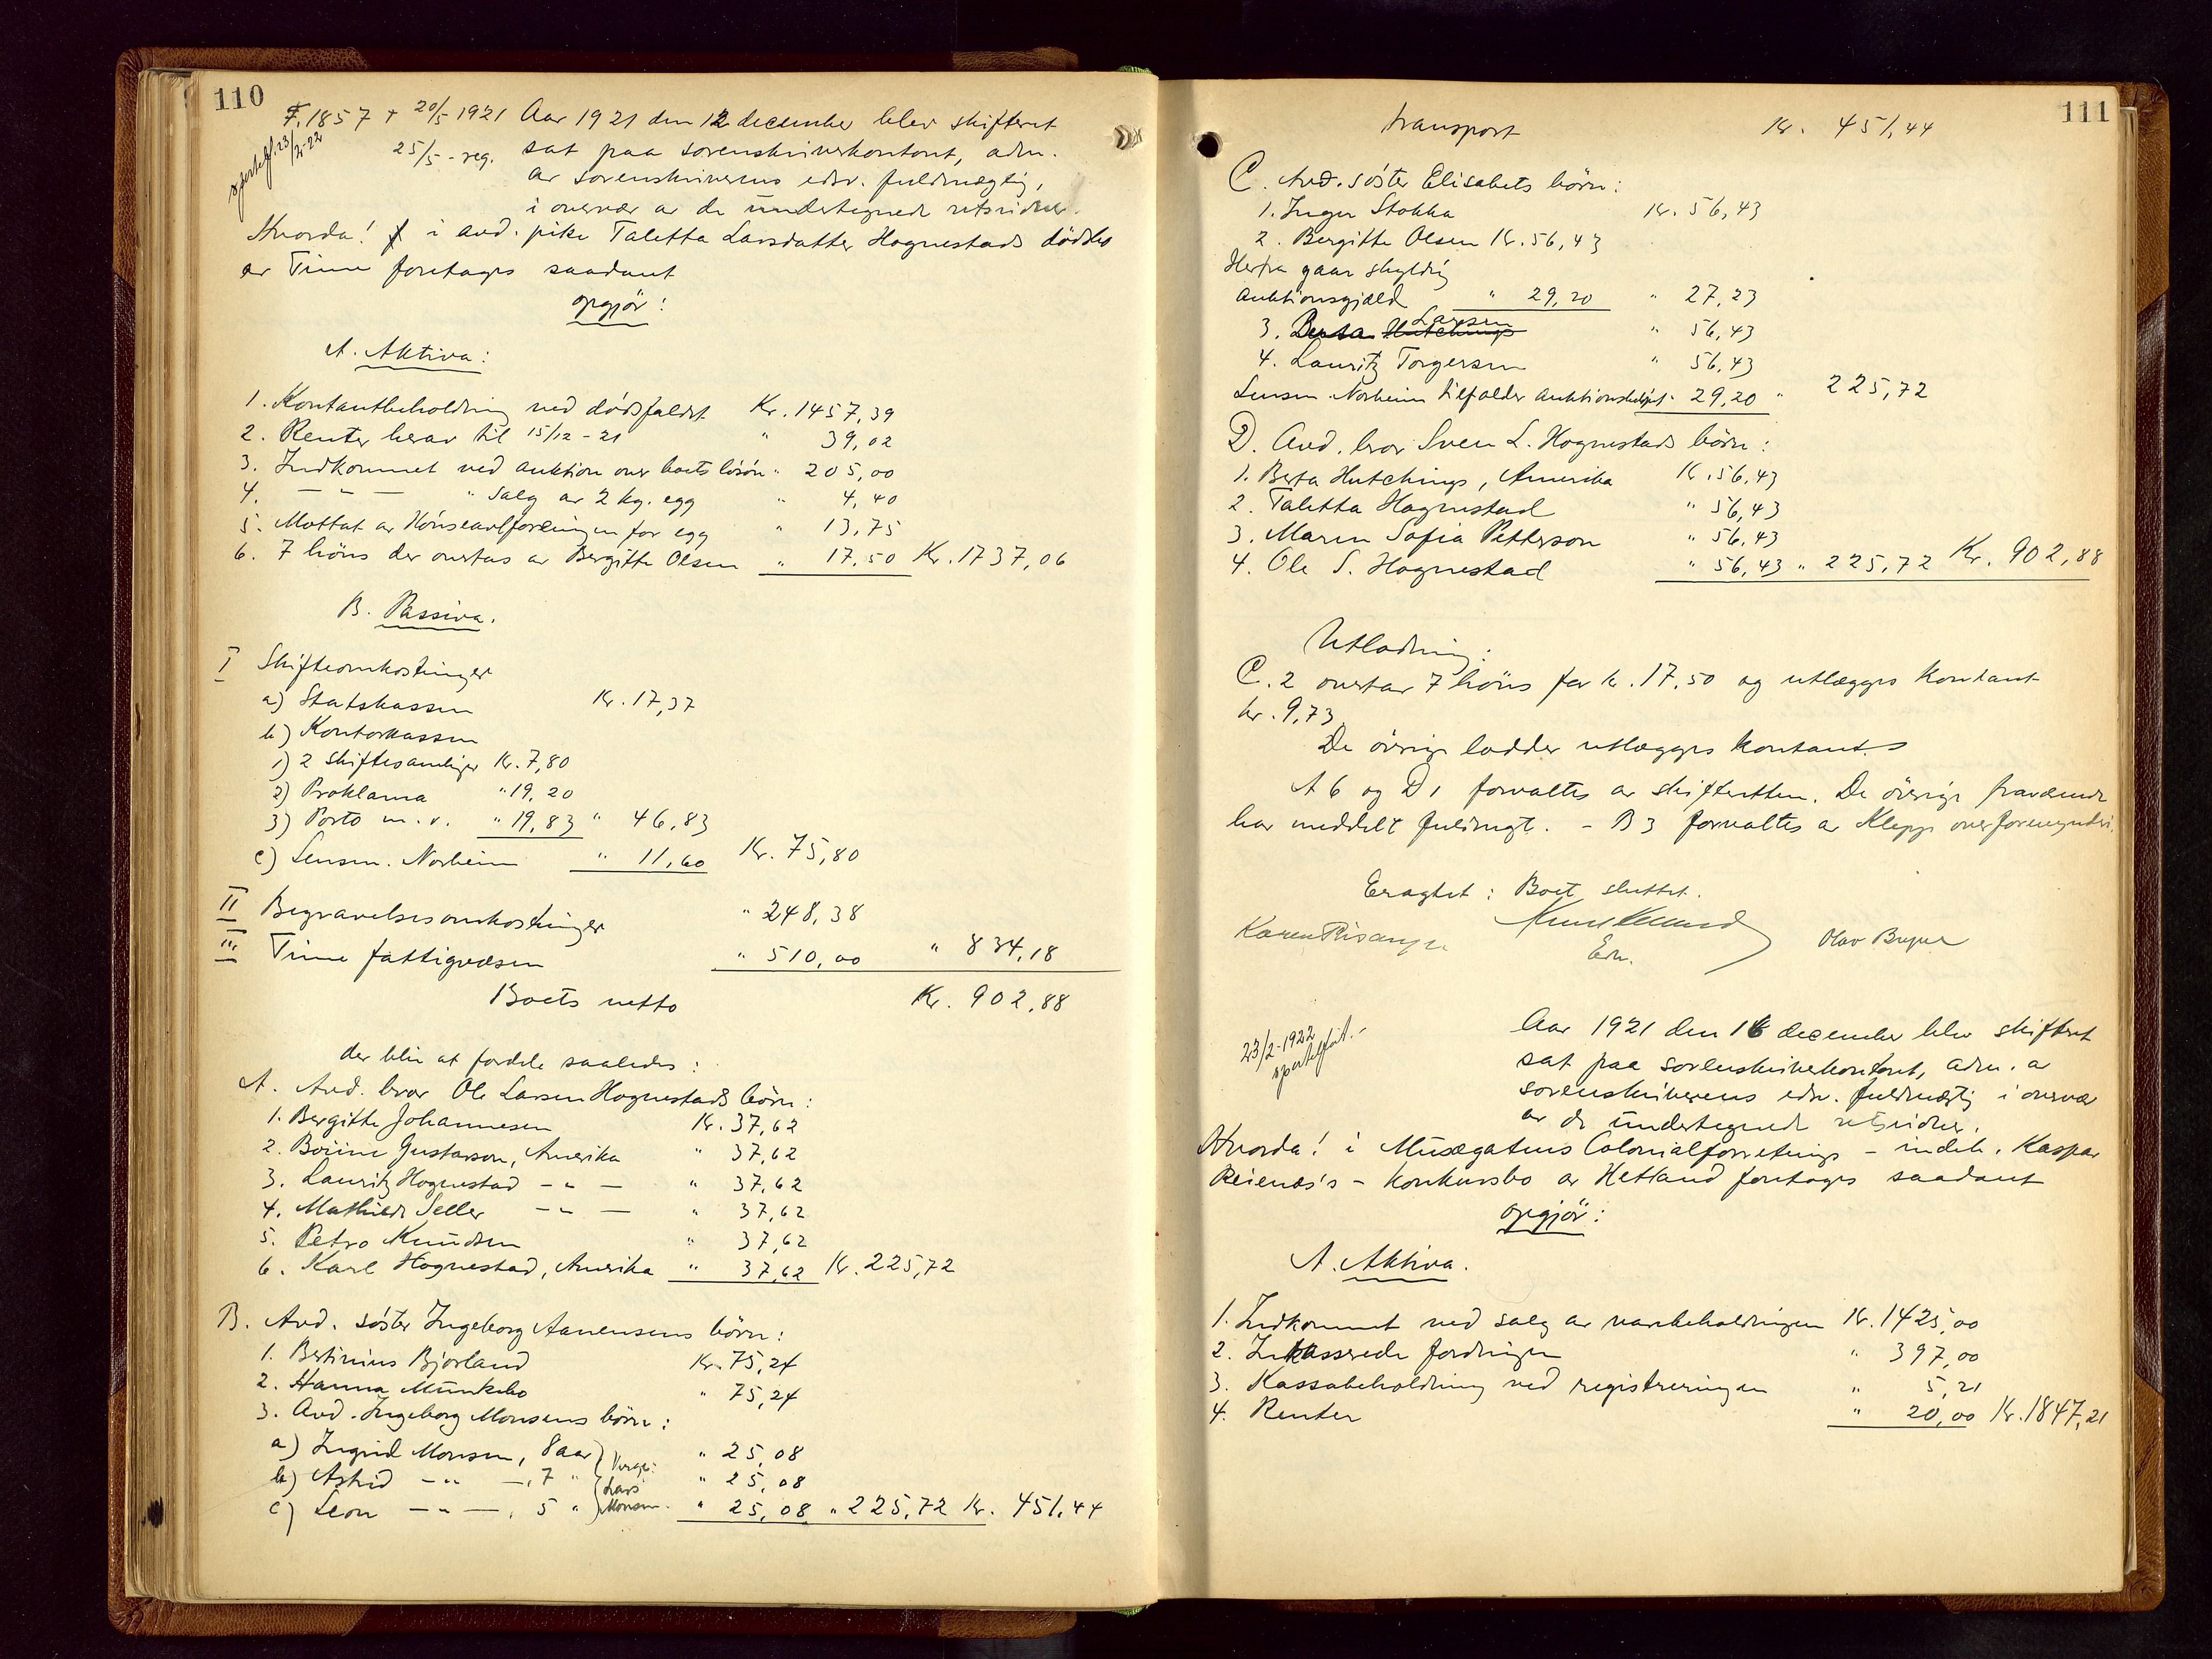 110
F. 1857 + 20/5 1921 Aar 1921 den 12 december blev skifteret
sportelf. 23/2-22
25/5 - reg. sat paa sorenskriverkontoret, adm.
av sorenskriverens edsv. fuldmægtig,
i overvær av de undertegnede retsvidner.
Hvorda! i avd. pike Taletta Larsdatter Hognestads dödsbo
av Time foretages saadant
opgjör:
A. Aktiva:
1. Kontantbeholdning ved dödsfaldet Kr. 1457,39
2. Renter herav til 15/12 - 21 " 39,02
3. Indkommet ved auktion over boets lösöre " 205,00
4. — " — " Salg av 2 kg. egg " 4,40
5. Mottat av Hönseavlforeningen for egg " 13,75
6. 7 höns der overtas av Bergitte Olsen " 17,50 Kr. 1737,06
B. Passiva.
I Skifteomkostninger
a) Statskassen Kr. 17,37
b) Kontorkassen
1) 2 skiftesamlinger Kr. 7,80
2) Proklama " 19,20
3) Porto m.v. " 19,83 " 46,83
c) Lensm. Norheim " 11,60 Kr. 75,80
II Begravelsesomkostninger " 248,38
III Time fattigvæsen " 510,00 " 834,18
Boets netto Kr. 902,88
der blir at fordele saaledes:
A. Avd. bror Ole Larsen Hognestads börn:
1. Bergitte Johannesen Kr. 37,62
2. Gustavson, Amerika " 37,62
3. Lauritz Hognestad — " — " 37,62
4. Mathilde Seller — " — " 37,62
5. Petro Knudsen " 37,62
6. Karl Hognestad, Amerika " 37,62 Kr. 225,72
B. Avd. söster Ingeborg Aanensens börn:
1. Bertinius Bjorland Kr. 75,24
2. Hanna Munkebo " 75,24
3. Avd. Ingeborg Monsens börn:
a) Ingrid Monsen, 8 aar } Verge: " 25,08
b) Astrid — " —, 7 " } Lars " 25,08
c) Leon — " —, 5 " } Monsen. " 25,08 " 225,72 Kr. 451,44
111
transport Kr. 451,44
C. Avd. söster Elisabets börn:
1. Inger Stokka Kr. 56,43
2. Bergitte Olsen Kr. 56,43
Herfra gaar skyldig
auktionsgjæld " 29,20 " 27,23
3. Berta Hutchings Larsen " 56,43
4. Lauritz Torgersen " 56,43
Lensm. Norheim tilfalder auktionsbelöpet " 29,20 " 225,72
D. Avd. bror Sven L. Hognestads börn:
1. Berta Hutchings, Amerika Kr. 56,43
2. Taletta Hognestad " 56,43
3. Maren Sofia Petterson " 56,43
4. Ole S. Hognestad " 56,43 " 225,72 Kr. 902,88
Utlodning:
C. 2 overtar 7 höns for kr. 17,50 og utlægges kontant
kr. 9,73
De övrige lodder utlægges kontant.
A 6 og D 1 forvaltes av skifteretten. De övrige fraværende
har meddelt fuldmagt. - B 3 forvaltes av Klepp overformynderi.
Eragtet: Boet sluttet.
Edv.
Olav
23/2-1922
sportelfrit.
Aar 1921 den 16 december blev skifteret
sat paa sorenskriverkontoret, adm. av
sorenskriverens edsv. fuldmægtig i overvær
av de undertegnede retsvidner.
Hvorda! i Musægatens Colonialforretnings - indeh. Kaspar
Reienæs's - konkursbo av Hetland foretages saadant
opgjör:
A. Aktiva.
1. Indkommet ved salg av varebeholdningen Kr. 1425,00
2. Inkasserede fordringer " 397,00
3. Kassabeholdning ved registreringen " 5,21
4. Renter " 20,00 Kr. 1847,21